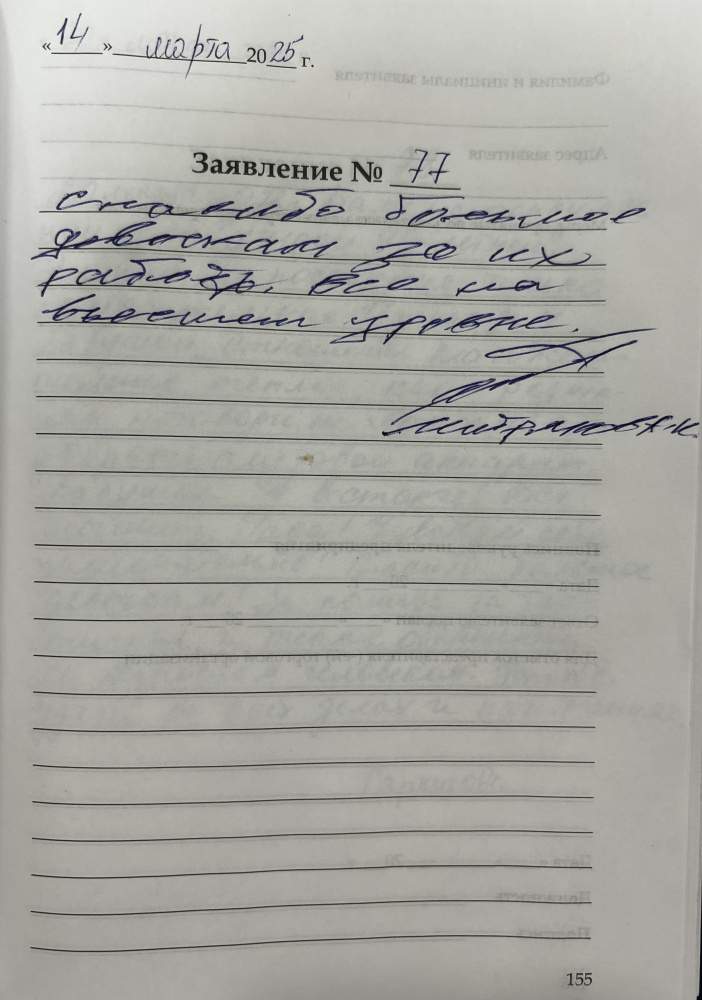 «14» марта 2025 г.
Заявление № 77
спасибо большое
девочкам за их
работу. Все на
высшем уровне.
155